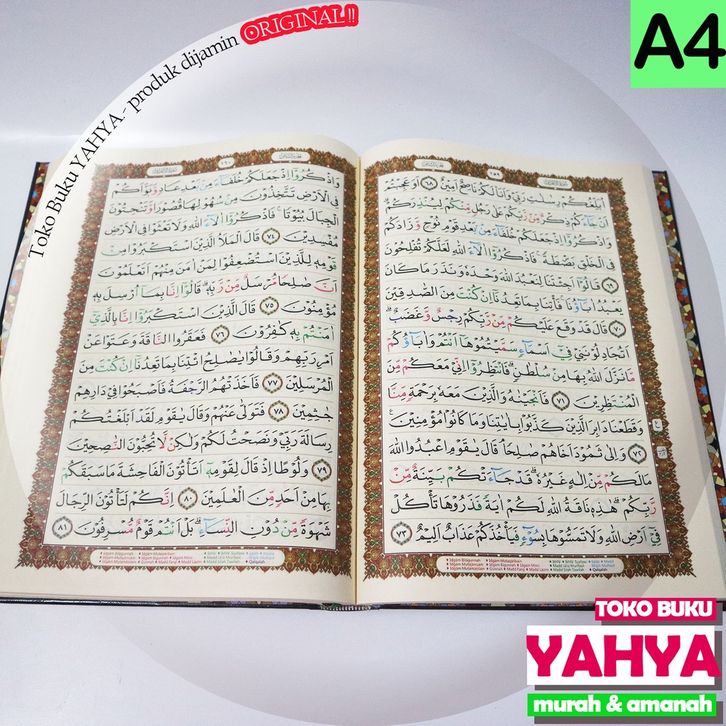 Toko Buku YAHYA - produk dijamin ORIGINAL!!
A4
١٥٩
أُبَلِّغُكُمْ رِسَٰلَٰتِ رَبِّي وَأَنَا۠ لَكُمْ نَاصِحٌ أَمِينٌ ٦٨ أَوَعَجِبْتُمْ
أَن جَآءَكُمْ ذِكْرٌ مِّن رَّبِّكُمْ عَلَىٰ رَجُلٍ مِّنكُمْ لِيُنذِرَكُمْ
وَٱذْكُرُوٓا۟ إِذْ جَعَلَكُمْ خُلَفَآءَ مِنۢ بَعْدِ قَوْمِ نُوحٍ وَزَادَكُمْ
فِي ٱلْخَلْقِ بَصْۜطَةً فَٱذْكُرُوٓا۟ ءَالَآءَ ٱللَّهِ لَعَلَّكُمْ تُفْلِحُونَ
٦٩ قَالُوٓا۟ أَجِئْتَنَا لِنَعْبُدَ ٱللَّهَ وَحْدَهُۥ وَنَذَرَ مَا كَانَ
يَعْبُدُ ءَابَآؤُنَا فَأْتِنَا بِمَا تَعِدُنَآ إِن كُنتَ مِنَ ٱلصَّٰدِقِينَ
٧٠ قَالَ قَدْ وَقَعَ عَلَيْكُم مِّن رَّبِّكُمْ رِجْسٌ وَغَضَبٌ
أَتُجَٰدِلُونَنِي فِيٓ أَسْمَآءٍ سَمَّيْتُمُوهَآ أَنتُمْ وَءَابَآؤُكُم
مَّا نَزَّلَ ٱللَّهُ بِهَا مِن سُلْطَٰنٍ فَٱنتَظِرُوٓا۟ إِنِّي مَعَكُم مِّنَ
ٱلْمُنتَظِرِينَ ٧١ فَأَنجَيْنَٰهُ وَٱلَّذِينَ مَعَهُۥ بِرَحْمَةٍ مِّنَّا
وَقَطَعْنَا دَابِرَ ٱلَّذِينَ كَذَّبُوا۟ بِـَٔايَٰتِنَا وَمَا كَانُوا۟ مُؤْمِنِينَ
٧٢ وَإِلَىٰ ثَمُودَ أَخَاهُمْ صَٰلِحًا قَالَ يَٰقَوْمِ ٱعْبُدُوا۟ ٱللَّهَ
مَا لَكُم مِّنْ إِلَٰهٍ غَيْرُهُۥ قَدْ جَآءَتْكُم بَيِّنَةٌ مِّن
رَّبِّكُمْ هَٰذِهِۦ نَاقَةُ ٱللَّهِ لَكُمْ ءَايَةً فَذَرُوهَا تَأْكُلْ
فِيٓ أَرْضِ ٱللَّهِ وَلَا تَمَسُّوهَا بِسُوٓءٍ فَيَأْخُذَكُمْ عَذَابٌ أَلِيمٌ ٧٣
١٦٠
وَٱذْكُرُوٓا۟ إِذْ جَعَلَكُمْ خُلَفَآءَ مِنۢ بَعْدِ عَادٍ وَبَوَّأَكُمْ
فِي ٱلْأَرْضِ تَتَّخِذُونَ مِن سُهُولِهَا قُصُورًا وَتَنْحِتُونَ
ٱلْجِبَالَ بُيُوتًا فَٱذْكُرُوٓا۟ ءَالَآءَ ٱللَّهِ وَلَا تَعْثَوْا۟ فِي ٱلْأَرْضِ
مُفْسِدِينَ ٧٤ قَالَ ٱلْمَلَأُ ٱلَّذِينَ ٱسْتَكْبَرُوا۟ مِن
قَوْمِهِۦ لِلَّذِينَ ٱسْتُضْعِفُوا۟ لِمَنْ ءَامَنَ مِنْهُمْ أَتَعْلَمُونَ
أَنَّ صَٰلِحًا مُّرْسَلٌ مِّن رَّبِّهِۦ قَالُوٓا۟ إِنَّا بِمَآ أُرْسِلَ بِهِۦ
مُؤْمِنُونَ ٧٥ قَالَ ٱلَّذِينَ ٱسْتَكْبَرُوٓا۟ إِنَّا بِٱلَّذِيٓ
ءَامَنتُم بِهِۦ كَٰفِرُونَ ٧٦ فَعَقَرُوا۟ ٱلنَّاقَةَ وَعَتَوْا۟ عَنْ
أَمْرِ رَبِّهِمْ وَقَالُوا۟ يَٰصَٰلِحُ ٱئْتِنَا بِمَا تَعِدُنَآ إِن كُنتَ مِنَ
ٱلْمُرْسَلِينَ ٧٧ فَأَخَذَتْهُمُ ٱلرَّجْفَةُ فَأَصْبَحُوا۟ فِي دَارِهِمْ
جَٰثِمِينَ ٧٨ فَتَوَلَّىٰ عَنْهُمْ وَقَالَ يَٰقَوْمِ لَقَدْ أَبْلَغْتُكُمْ
رِسَالَةَ رَبِّي وَنَصَحْتُ لَكُمْ وَلَٰكِن لَّا تُحِبُّونَ ٱلنَّٰصِحِينَ
٧٩ وَلُوطًا إِذْ قَالَ لِقَوْمِهِۦٓ أَتَأْتُونَ ٱلْفَٰحِشَةَ مَا سَبَقَكُم
بِهَا مِنْ أَحَدٍ مِّنَ ٱلْعَٰلَمِينَ ٨٠ إِنَّكُمْ لَتَأْتُونَ ٱلرِّجَالَ
شَهْوَةً مِّن دُونِ ٱلنِّسَآءِ بَلْ أَنتُمْ قَوْمٌ مُّسْرِفُونَ ٨١
TOKO BUKU
YAHYA
murah & amanah